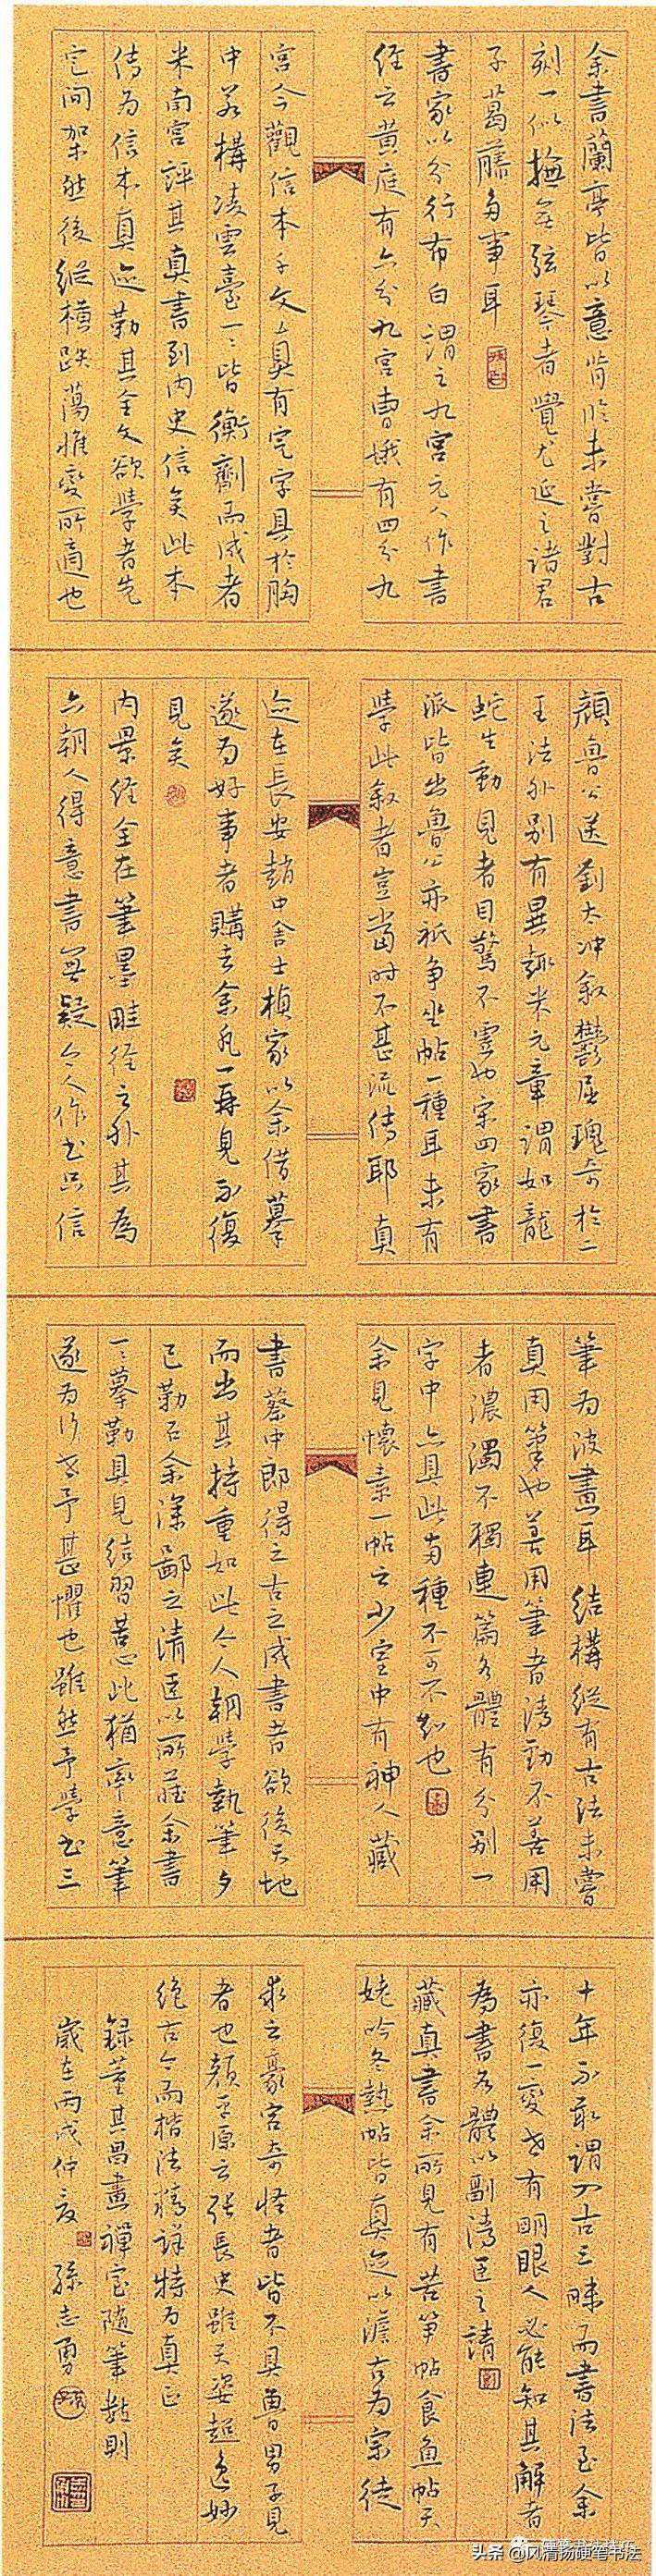 余書蘭亭皆以意背臨未嘗對古
刻一似撫無弦琴者覺尤延之諸君
子葛藤多事耳
書家以分行布白謂之九宮元人作書
經云黃庭有六分九宮曹娥有四分九
宮今觀信本千文真有完字具於胸
中若構凌雲臺一一皆衡劑而成者
米南宮評其真書到內史信矣此本
傳為信本真迹勒其全文欲學者先
定間架然後縱橫跌蕩惟變所適也
顏魯公送劉太沖敘鬱屈瑰奇於二
王法外別有異趣米元章謂如龍
蛇生動見者目驚不虛也宋四家書
派皆出魯公亦祇爭坐帖一種耳未有
學此敘者豈當時不甚流傳耶真
迹在長安趙中舍士楨家以余借摹
遂為好事者購去余凡一再見不復
見矣
內景經全在筆墨畦徑之外其為
六朝人得意書無疑今人作書只信
筆為波畫耳結構縱有古法未嘗
真用筆也善用筆者清勁不善用
者濃濁不獨連篇各體有分別一
字中亦具此兩種不可不知也
余見懷素一帖云少室中有神人藏
書蔡中郎得之古之成書者欲後天地
而出其持重如此今人朝學執筆夕
已勒石余深鄙之清臣以所藏余書
一一摹勒具見結習苦心此猶率意筆
遂為行世予甚懼也雖然予學書三
十年不敢謂入古三昧而書法至余
亦復一變世有明眼人必能知其解者
為書各體以副清臣之請
藏真書余所見有苦筍帖食魚帖天
姥吟冬熱帖皆真迹以澹古為宗徒
求之豪宕奇怪者皆不具魯男子見
者也顏平原云張長史雖天姿超逸妙
絕古今而楷法精詳特為真正
錄董其昌畫禪室隨筆數則
歲在丙戌仲夏 孫志勇
头条 @风清扬硬笔书法